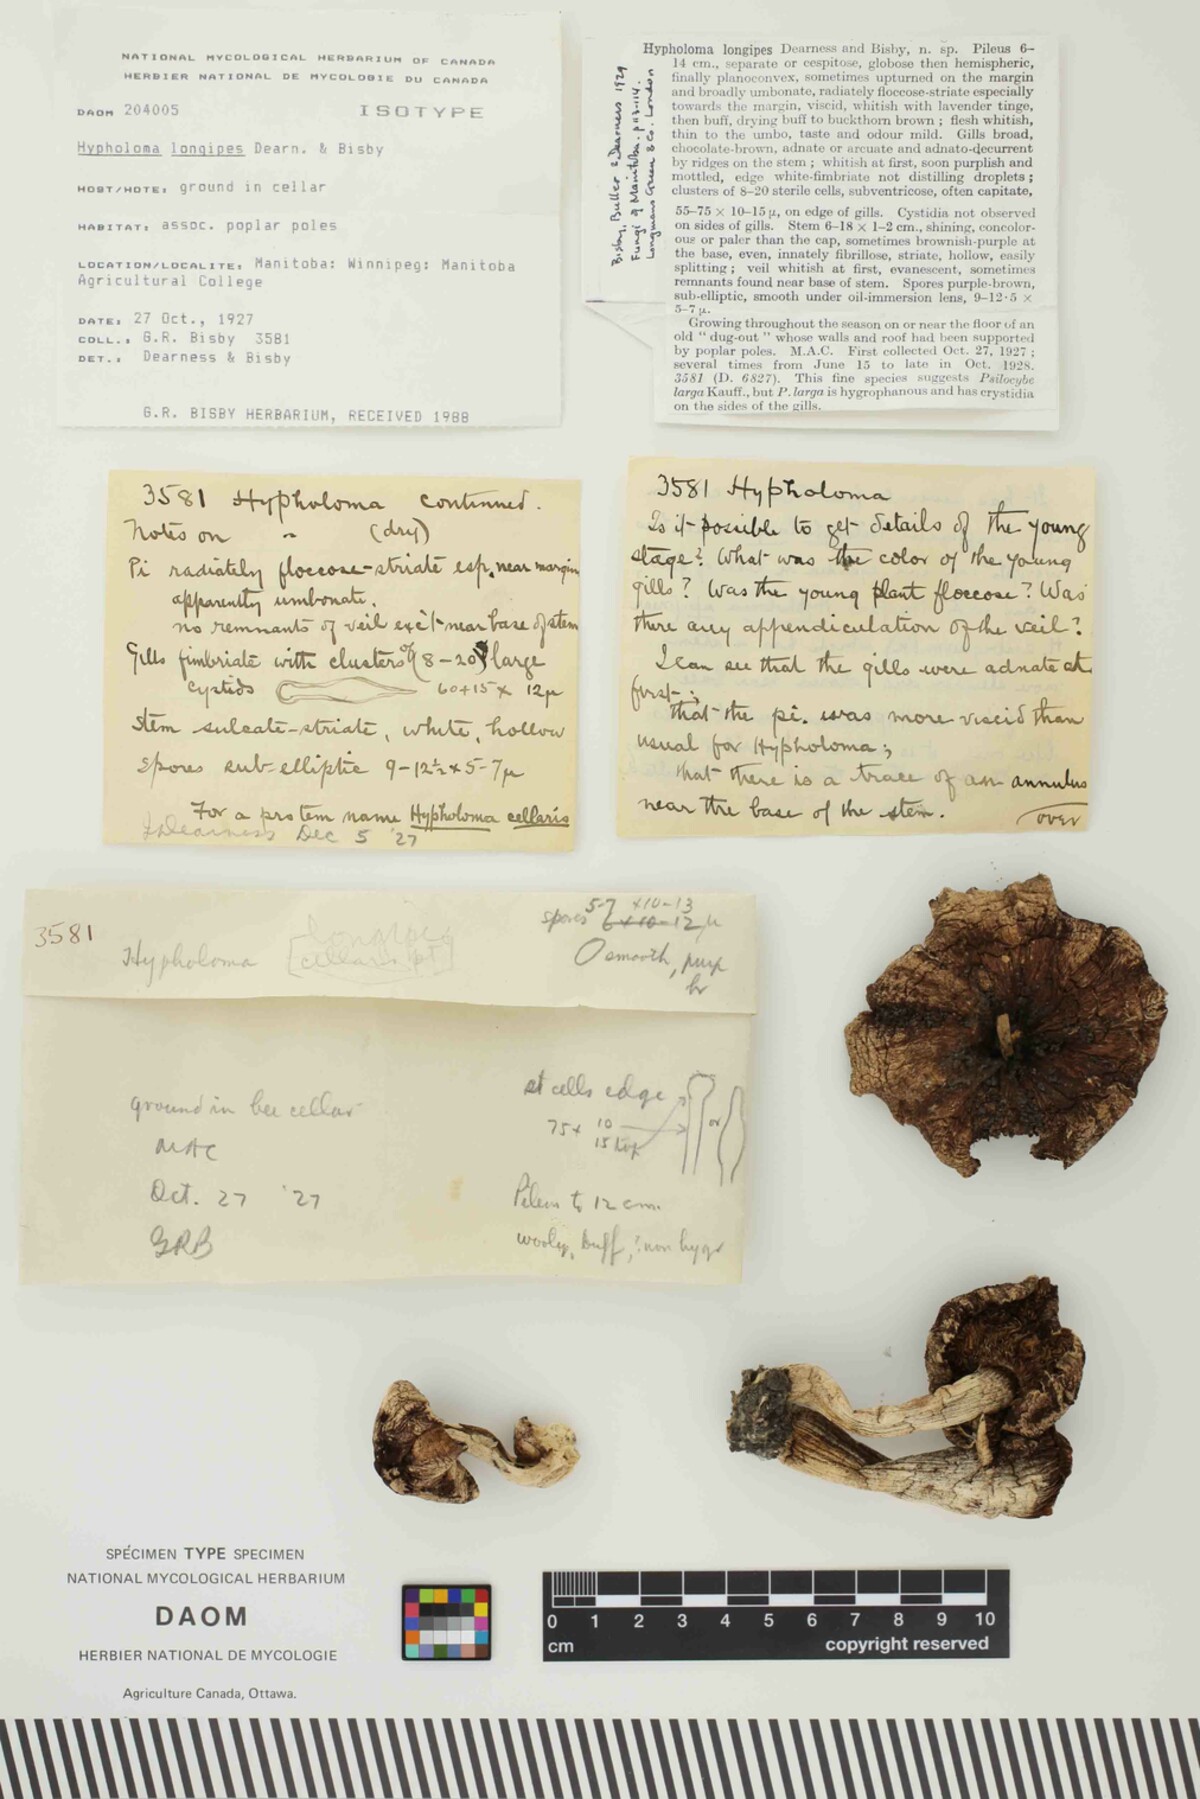 NATIONAL MYCOLOGICAL HERBARIUM OF CANADA
HERBIER NATIONAL DE MYCOLOGIE DU CANADA
DAOM 204005 ISOTYPE
Hypholoma longipes Dearn. & Bisby
HOST/HOTE: ground in cellar
HABITAT: assoc. poplar poles
LOCATION/LOCALITE: Manitoba: Winnipeg: Manitoba
Agricultural College
DATE: 27 Oct., 1927
COLL.: G.R. Bisby 3581
DET.: Dearness & Bisby
G.R. BISBY HERBARIUM, RECEIVED 1988
Bisby, Buller & Dearness 1929
Fungi of Manitoba. p 113-114.
Longmans Green & Co. London
Hypholoma longipes Dearness and Bisby, n. sp. Pileus 6–
14 cm., separate or cespitose, globose then hemispheric,
finally planoconvex, sometimes upturned on the margin
and broadly umbonate, radiately floccose-striate especially
towards the margin, viscid, whitish with lavender tinge,
then buff, drying buff to buckthorn brown ; flesh whitish,
thin to the umbo, taste and odour mild. Gills broad,
chocolate-brown, adnate or arcuate and adnato-decurrent
by ridges on the stem ; whitish at first, soon purplish and
mottled, edge white-fimbriate not distilling droplets ;
clusters of 8–20 sterile cells, subventricose, often capitate,
55–75 × 10–15 μ, on edge of gills. Cystidia not observed
on sides of gills. Stem 6–18 × 1–2 cm., shining, concolor-
ous or paler than the cap, sometimes brownish-purple at
the base, even, innately fibrillose, striate, hollow, easily
splitting ; veil whitish at first, evanescent, sometimes
remnants found near base of stem. Spores purple-brown,
sub-elliptic, smooth under oil-immersion lens, 9–12·5 ×
5–7 μ.
Growing throughout the season on or near the floor of an
old " dug-out " whose walls and roof had been supported
by poplar poles. M.A.C. First collected Oct. 27, 1927 ;
several times from June 15 to late in Oct. 1928.
3581 (D. 6827). This fine species suggests Psilocybe
larga Kauff., but P. larga is hygrophanous and has crystidia
on the sides of the gills.
3581 Hypholoma continued.
Notes on " (dry)
Pi radiately floccose-striate esp. near margin
apparently umbonate.
no remnants of veil exc't near base of stem
Gills fimbriate with clusters of (8–20) large
cystids 60+15 x 12μ
Stem sulcate-striate, white, hollow
Spores sub-elliptic 9–12½ x 5–7μ
For a pro tem name Hypholoma cellaris
J. Dearness Dec 5 '27
3581 Hypholoma
Is it possible to get details of the young
stage? What was the color of the young
gills? Was the young plant floccose? Was
there any appendiculation of the veil?
I can see that the gills were adnate at
first;
that the pi. was more viscid than
usual for Hypholoma;
that there is a trace of an annulus
near the base of the stem.
over
3581
Hypholoma [longipes
cellaris pt]
5-7 x10-13
spores 6x10-12 μ
smooth, purp
br
ground in bee cellar
MAC
Oct. 27 '27
GRB
st cells edge
75x 10
15
or
Pileus to 12 cm.
wooly, buff, ? non hygr
SPÉCIMEN TYPE SPECIMEN
NATIONAL MYCOLOGICAL HERBARIUM
DAOM
HERBIER NATIONAL DE MYCOLOGIE
Agriculture Canada, Ottawa.
0 1 2 3 4 5 6 7 8 9 10
cm copyright reserved